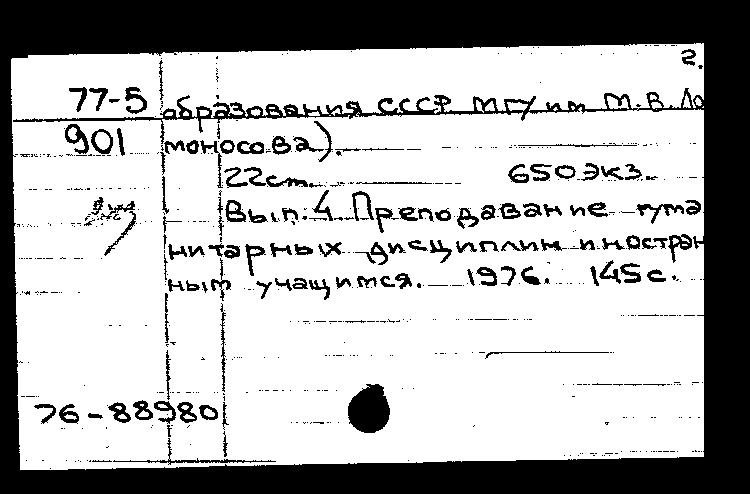 2.
77-5 образования СССР МГУ им М.В.Ло
901 моносова).
22см. 650экз.
Вып.4 Преподавание гума
нитарных дисциплин иностран
ным учащимся. 1976. 145с.
76-88980